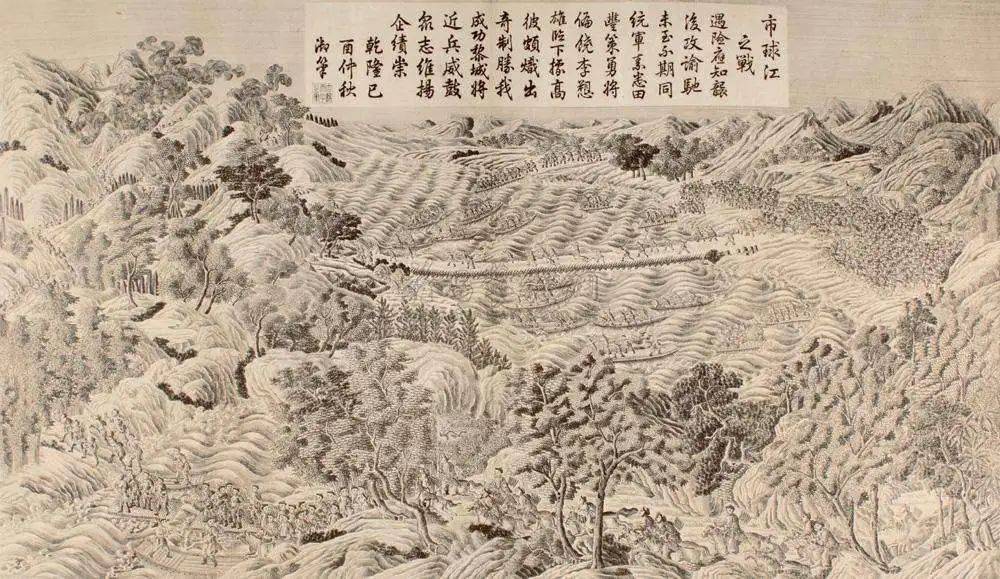 市球江
之戰
遇險應知
後攻諭馳
未至不期同
統軍素悉田
豐策勇將
偏繞李愬
雄臨下據高
彼頗熾出
奇制勝我
成功黎城將
近兵威鼓
衆志維揚
企績崇
乾隆己
酉仲秋
御筆